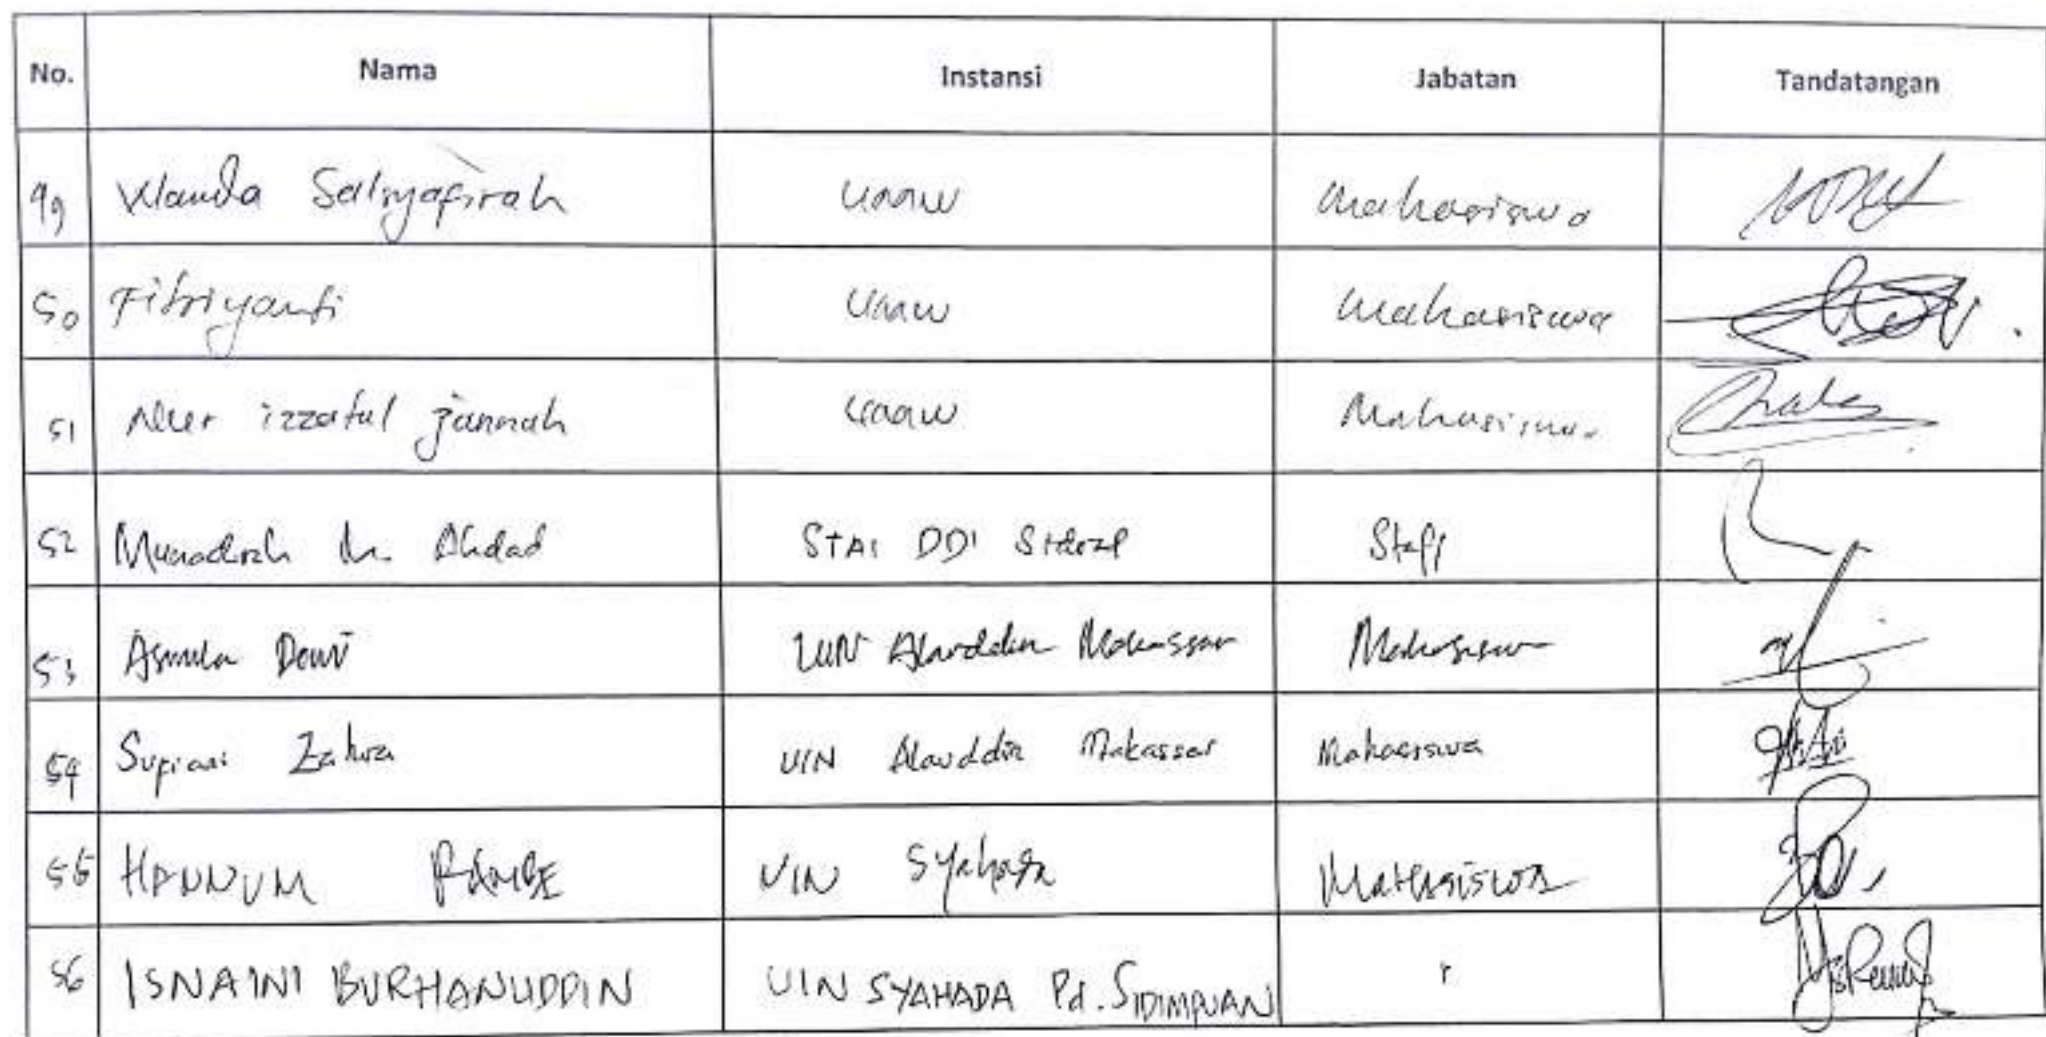 No. Nama Instansi Jabatan Tandatangan
49 Wanda Salsyafirah Mahasiswa
50 Fitriyanti Mahasiswa
51 Nur izzatul jannah Mahasiswa
52 Munadirah M. Ahdad STAI DDI Sidrap Staff
53 Asmula Dewi UIN Alauddin Makassar Mahasiswa
54 Supiani Zahra UIN Alauddin Makassar Mahasiswa
55 HANNUM RAMBE UIN Syahada Mahasiswa
56 ISNAINI BURHANUDDIN UIN SYAHADA Pd. SIDIMPUAN